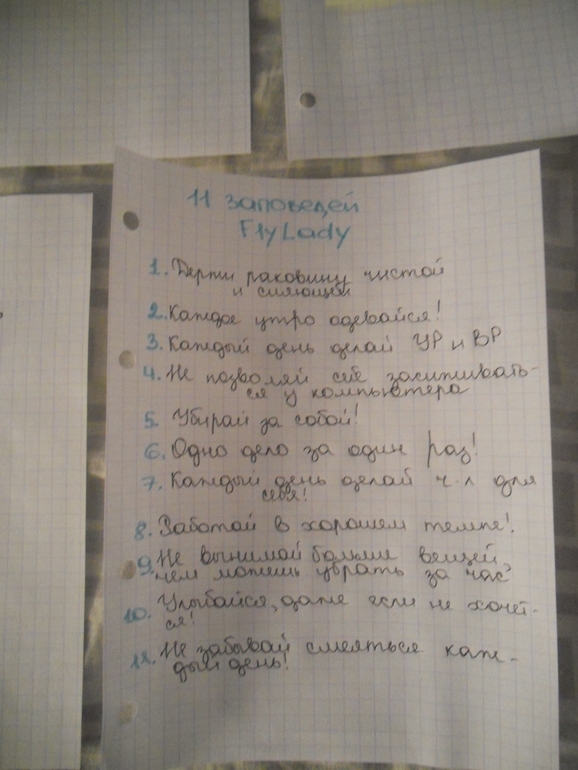 11 заповедей
FlyLady
1. Держи раковину чистой
и сияющей
2. Каждое утро одевайся!
3. Каждый день делай УР и ВР
4. Не позволяй себе засиживать-
ся у компьютера
5. Убирай за собой!
6. Одно дело за один раз!
7. Каждый день делай ч-л для
себя!
8. Работай в хорошем темпе!
9. Не вынимай больше вещей,
чем можешь убрать за час
10. Улыбайся, даже если не хочет-
ся!
11. Не забывай смеяться каж-
дый день!